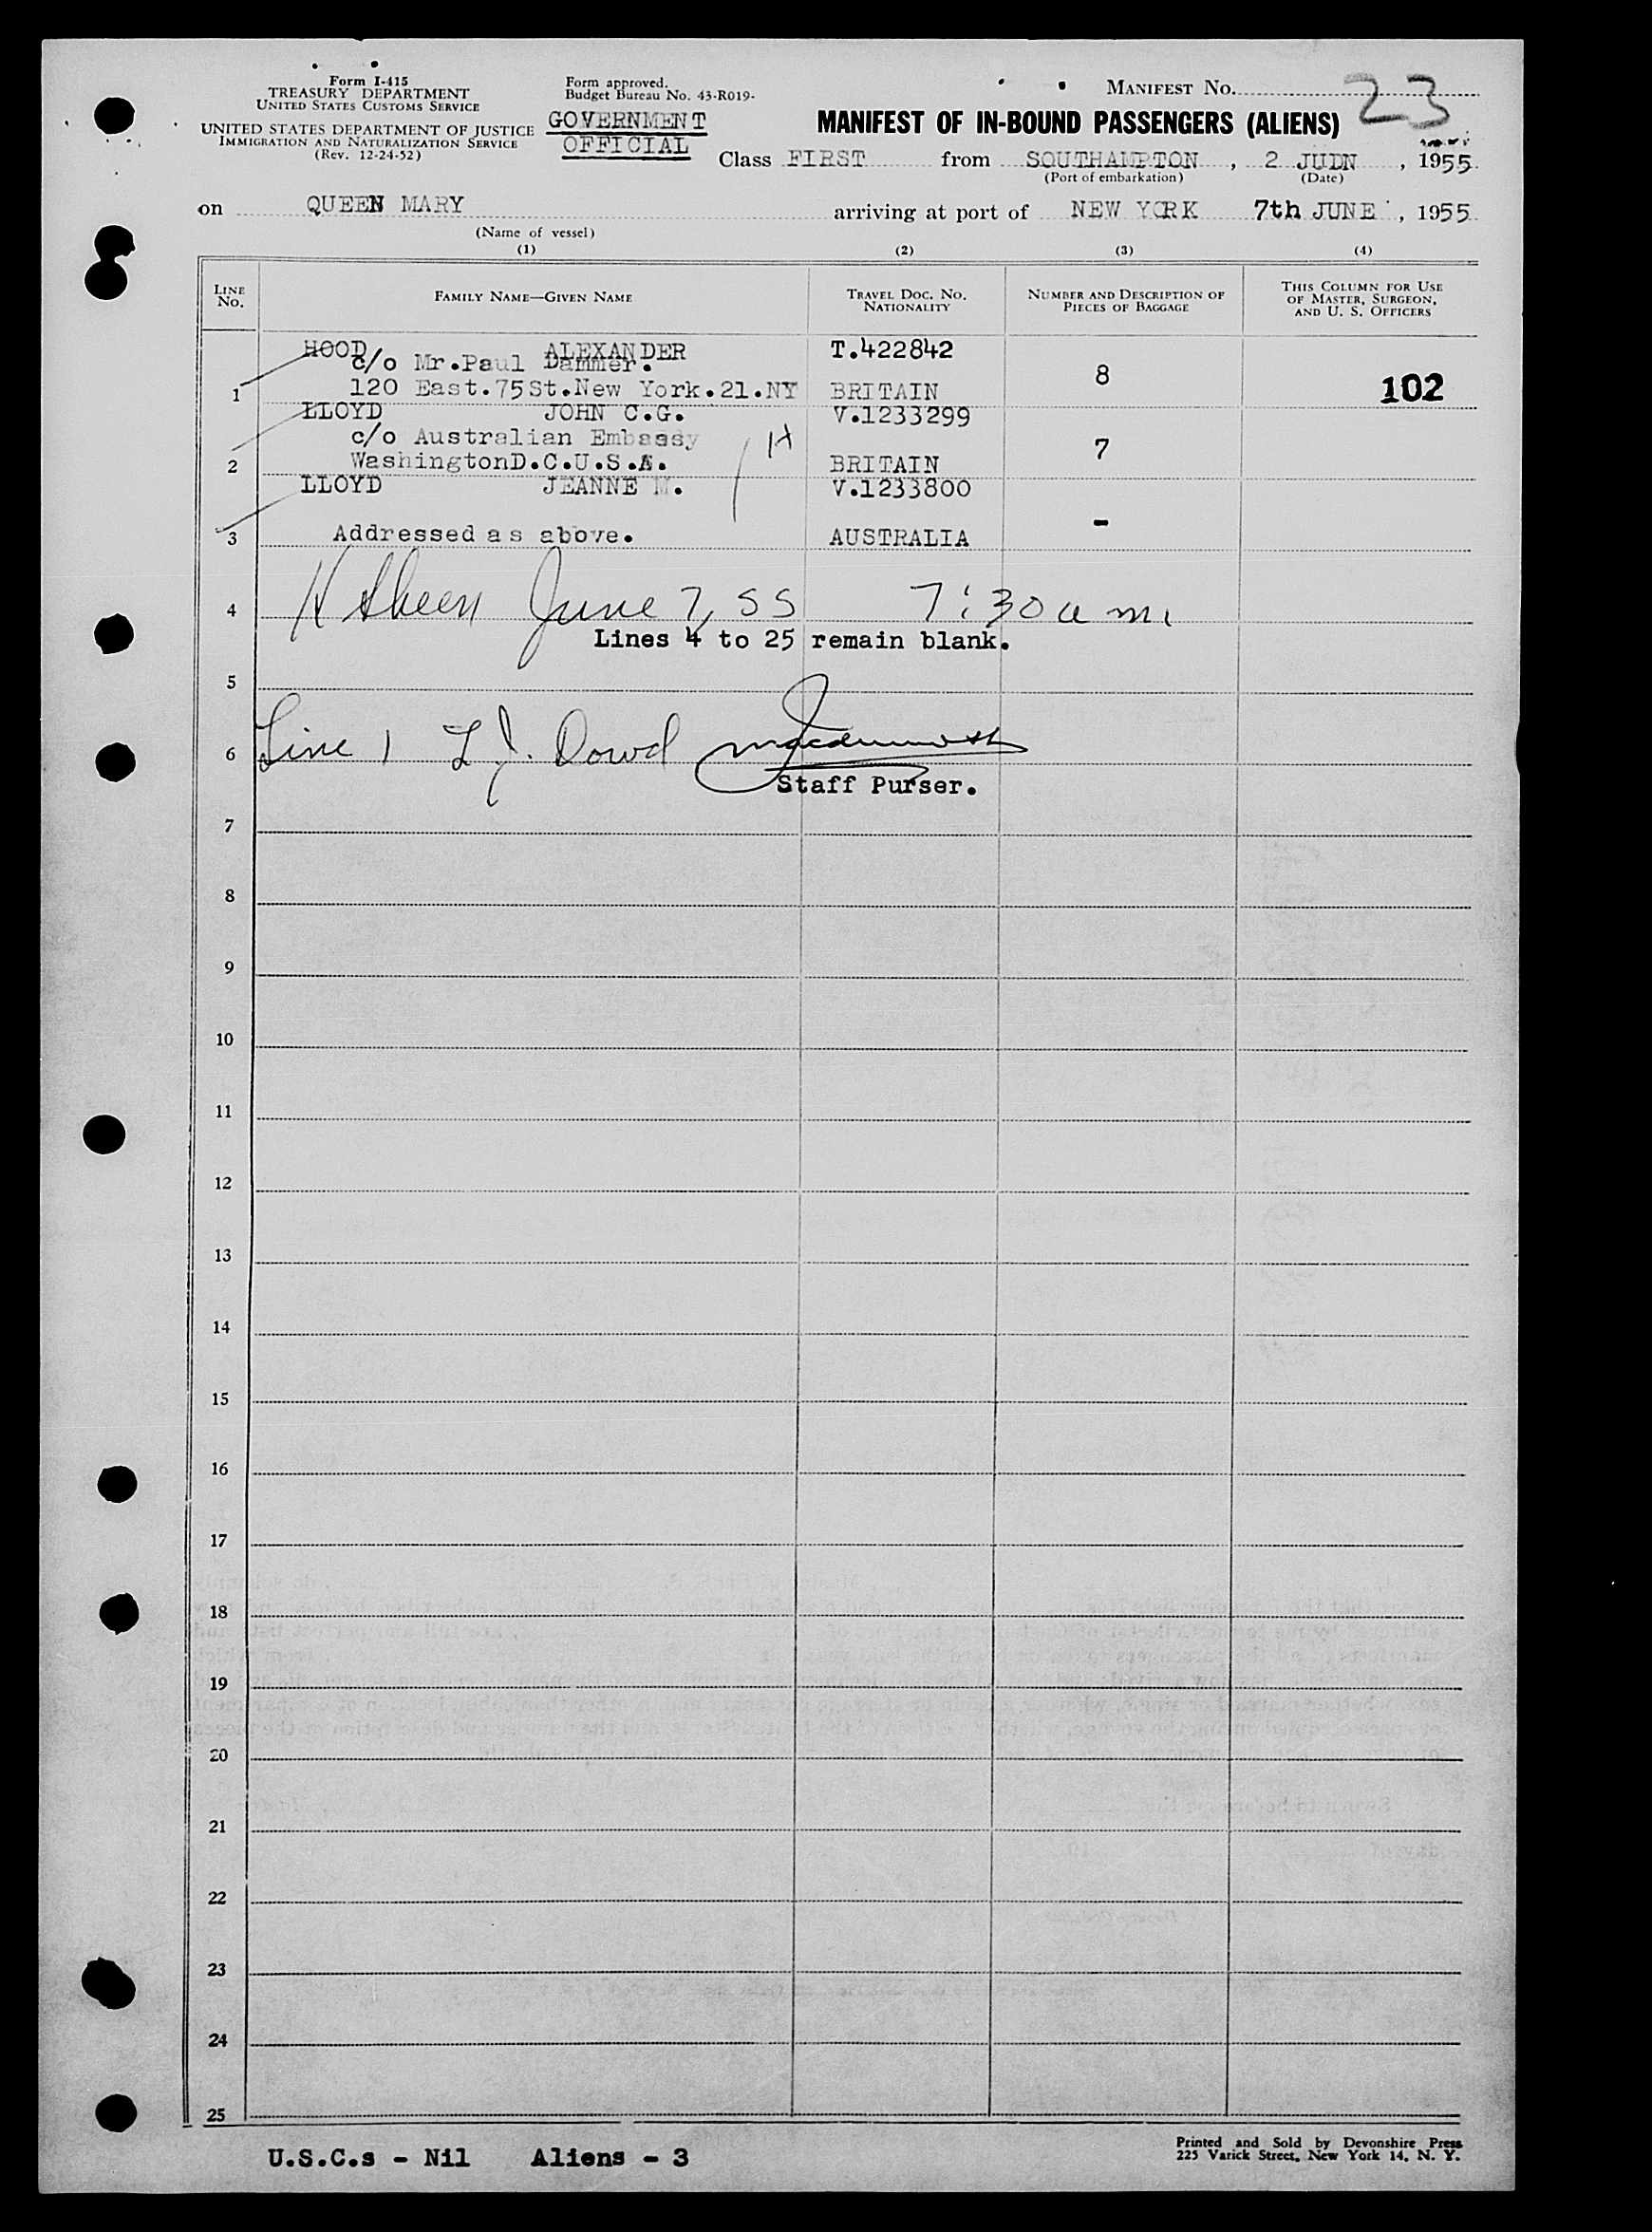 Form I-415
TREASURY DEPARTMENT
UNITED STATES CUSTOMS SERVICE
UNITED STATES DEPARTMENT OF JUSTICE
IMMIGRATION AND NATURALIZATION SERVICE
(Rev. 12-24-52)
Form approved.
Budget Bureau No. 43-R019-
GOVERNMENT
OFFICIAL
MANIFEST NO. 23
MANIFEST OF IN-BOUND PASSENGERS (ALIENS)
Class FIRST from SOUTHAMPTON, 2 JUDN, 1955
(Port of embarkation) (Date)
on QUEEN MARY arriving at port of NEW YORK 7th JUNE, 1955
(Name of vessel)
(1) (2) (3) (4)
LINE NO. FAMILY NAME—GIVEN NAME TRAVEL DOC. NO. NATIONALITY NUMBER AND DESCRIPTION OF PIECES OF BAGGAGE THIS COLUMN FOR USE OF MASTER, SURGEON, AND U. S. OFFICERS
HOOD ALEXANDER T.422842
c/o Mr.Paul Dammer. 8
1 120 East.75St.New York.21.NY BRITAIN 102
LLOYD JOHN C.G. V.1233299
c/o Australian Embassy 7
2 WashingtonD.C.U.S.A. BRITAIN
LLOYD JEANNE M. V.1233800
3 Addressed as above. AUSTRALIA -
4 June 7, 55 7:30 a m.
Lines 4 to 25 remain blank.
5
6 Line 1 L J. Dowd
Staff Purser.
7
8
9
10
11
12
13
14
15
16
17
18
19
20
21
22
23
24
25
U.S.C.s - Nil Aliens - 3
Printed and Sold by Devonshire Press
225 Varick Street, New York 14, N. Y.